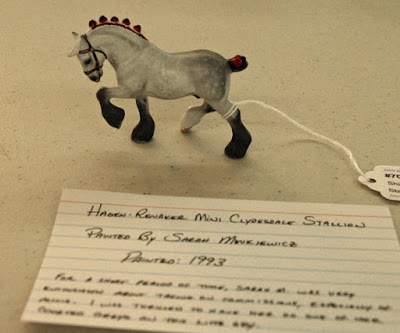 #70
Sh
Sta
Hagen-Renaker Mini Clydesdale Stallion
Painted By Sarah Minkiewicz
Painted: 1993
For a short period of time, Sarah M. was very
enthusiastic about taking on commissions, especially of
minis. I was thrilled to have her do one of her
coveted greys on this little guy.